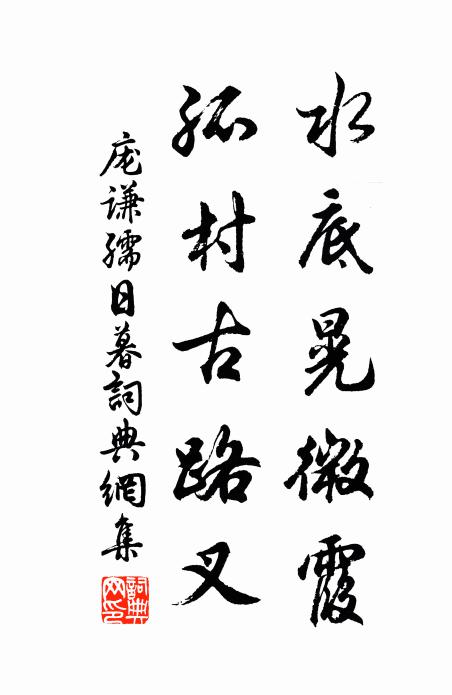 水底晃微霞
孤村古路叉
庞谦孺日暮詞典網集
詞典网印